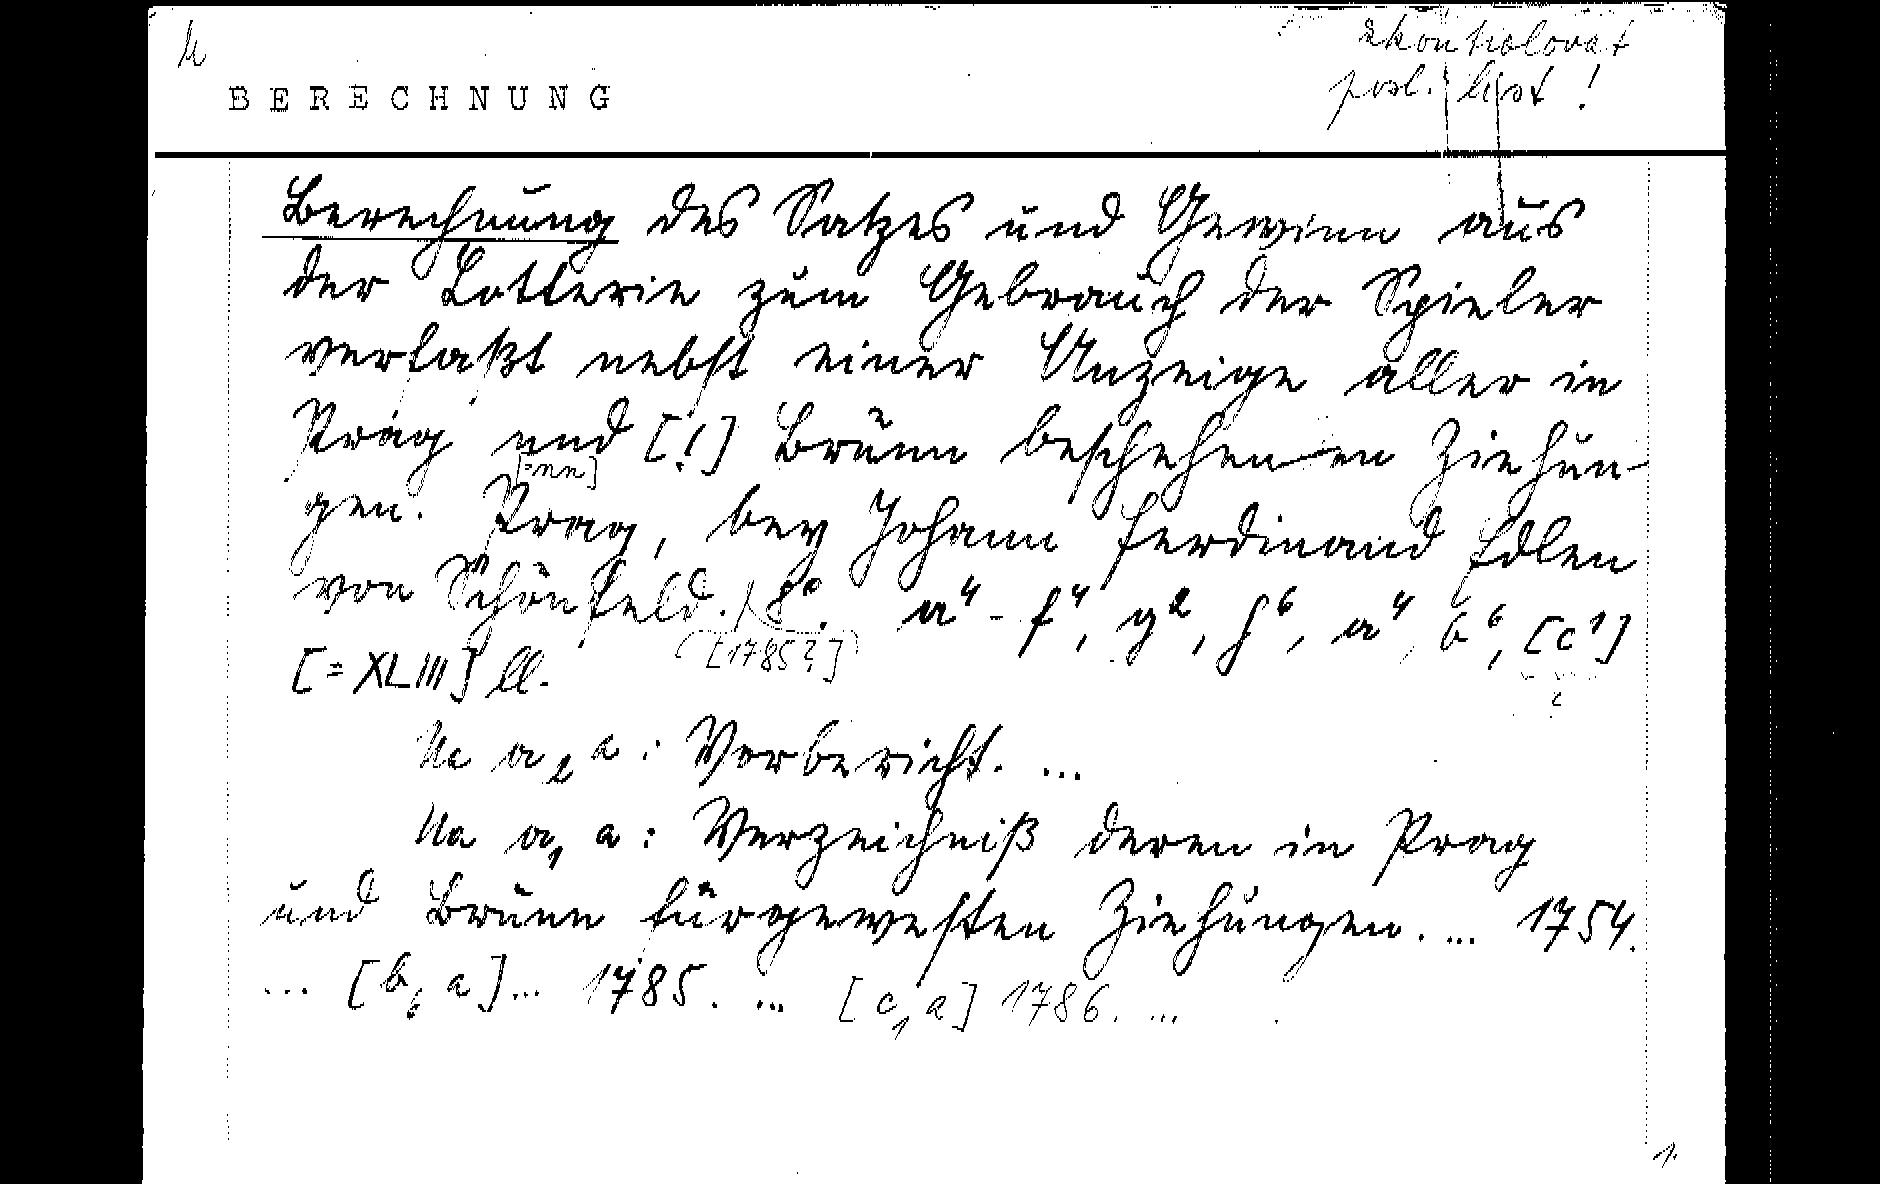 zkontrolovat
posl. list!
BERECHNUNG
Berechnung des Satzes und Gewinn aus
der Lotterie zum Gebrauch der Spieler
verfaßt nebst einer Anzeige aller in
Prag und [!] Brünn beschehenen Ziehun-
[=nn]
gen. Prag, bey Johann Ferdinand Edlen
von Schönfeld. 8°. a⁴ - f⁴, g², h⁶, a⁴, b⁶, [c¹]
[1785?]
[= XLIII] ll.
?
Na a₂ a: Vorbericht. ...
Na a₁ a: Verzeichniß deren in Prag
und Brünn fürgewesten Ziehungen. ... 1754.
... [b₆ a] ... 1785. ... [c₁ a] 1786. ...
1.